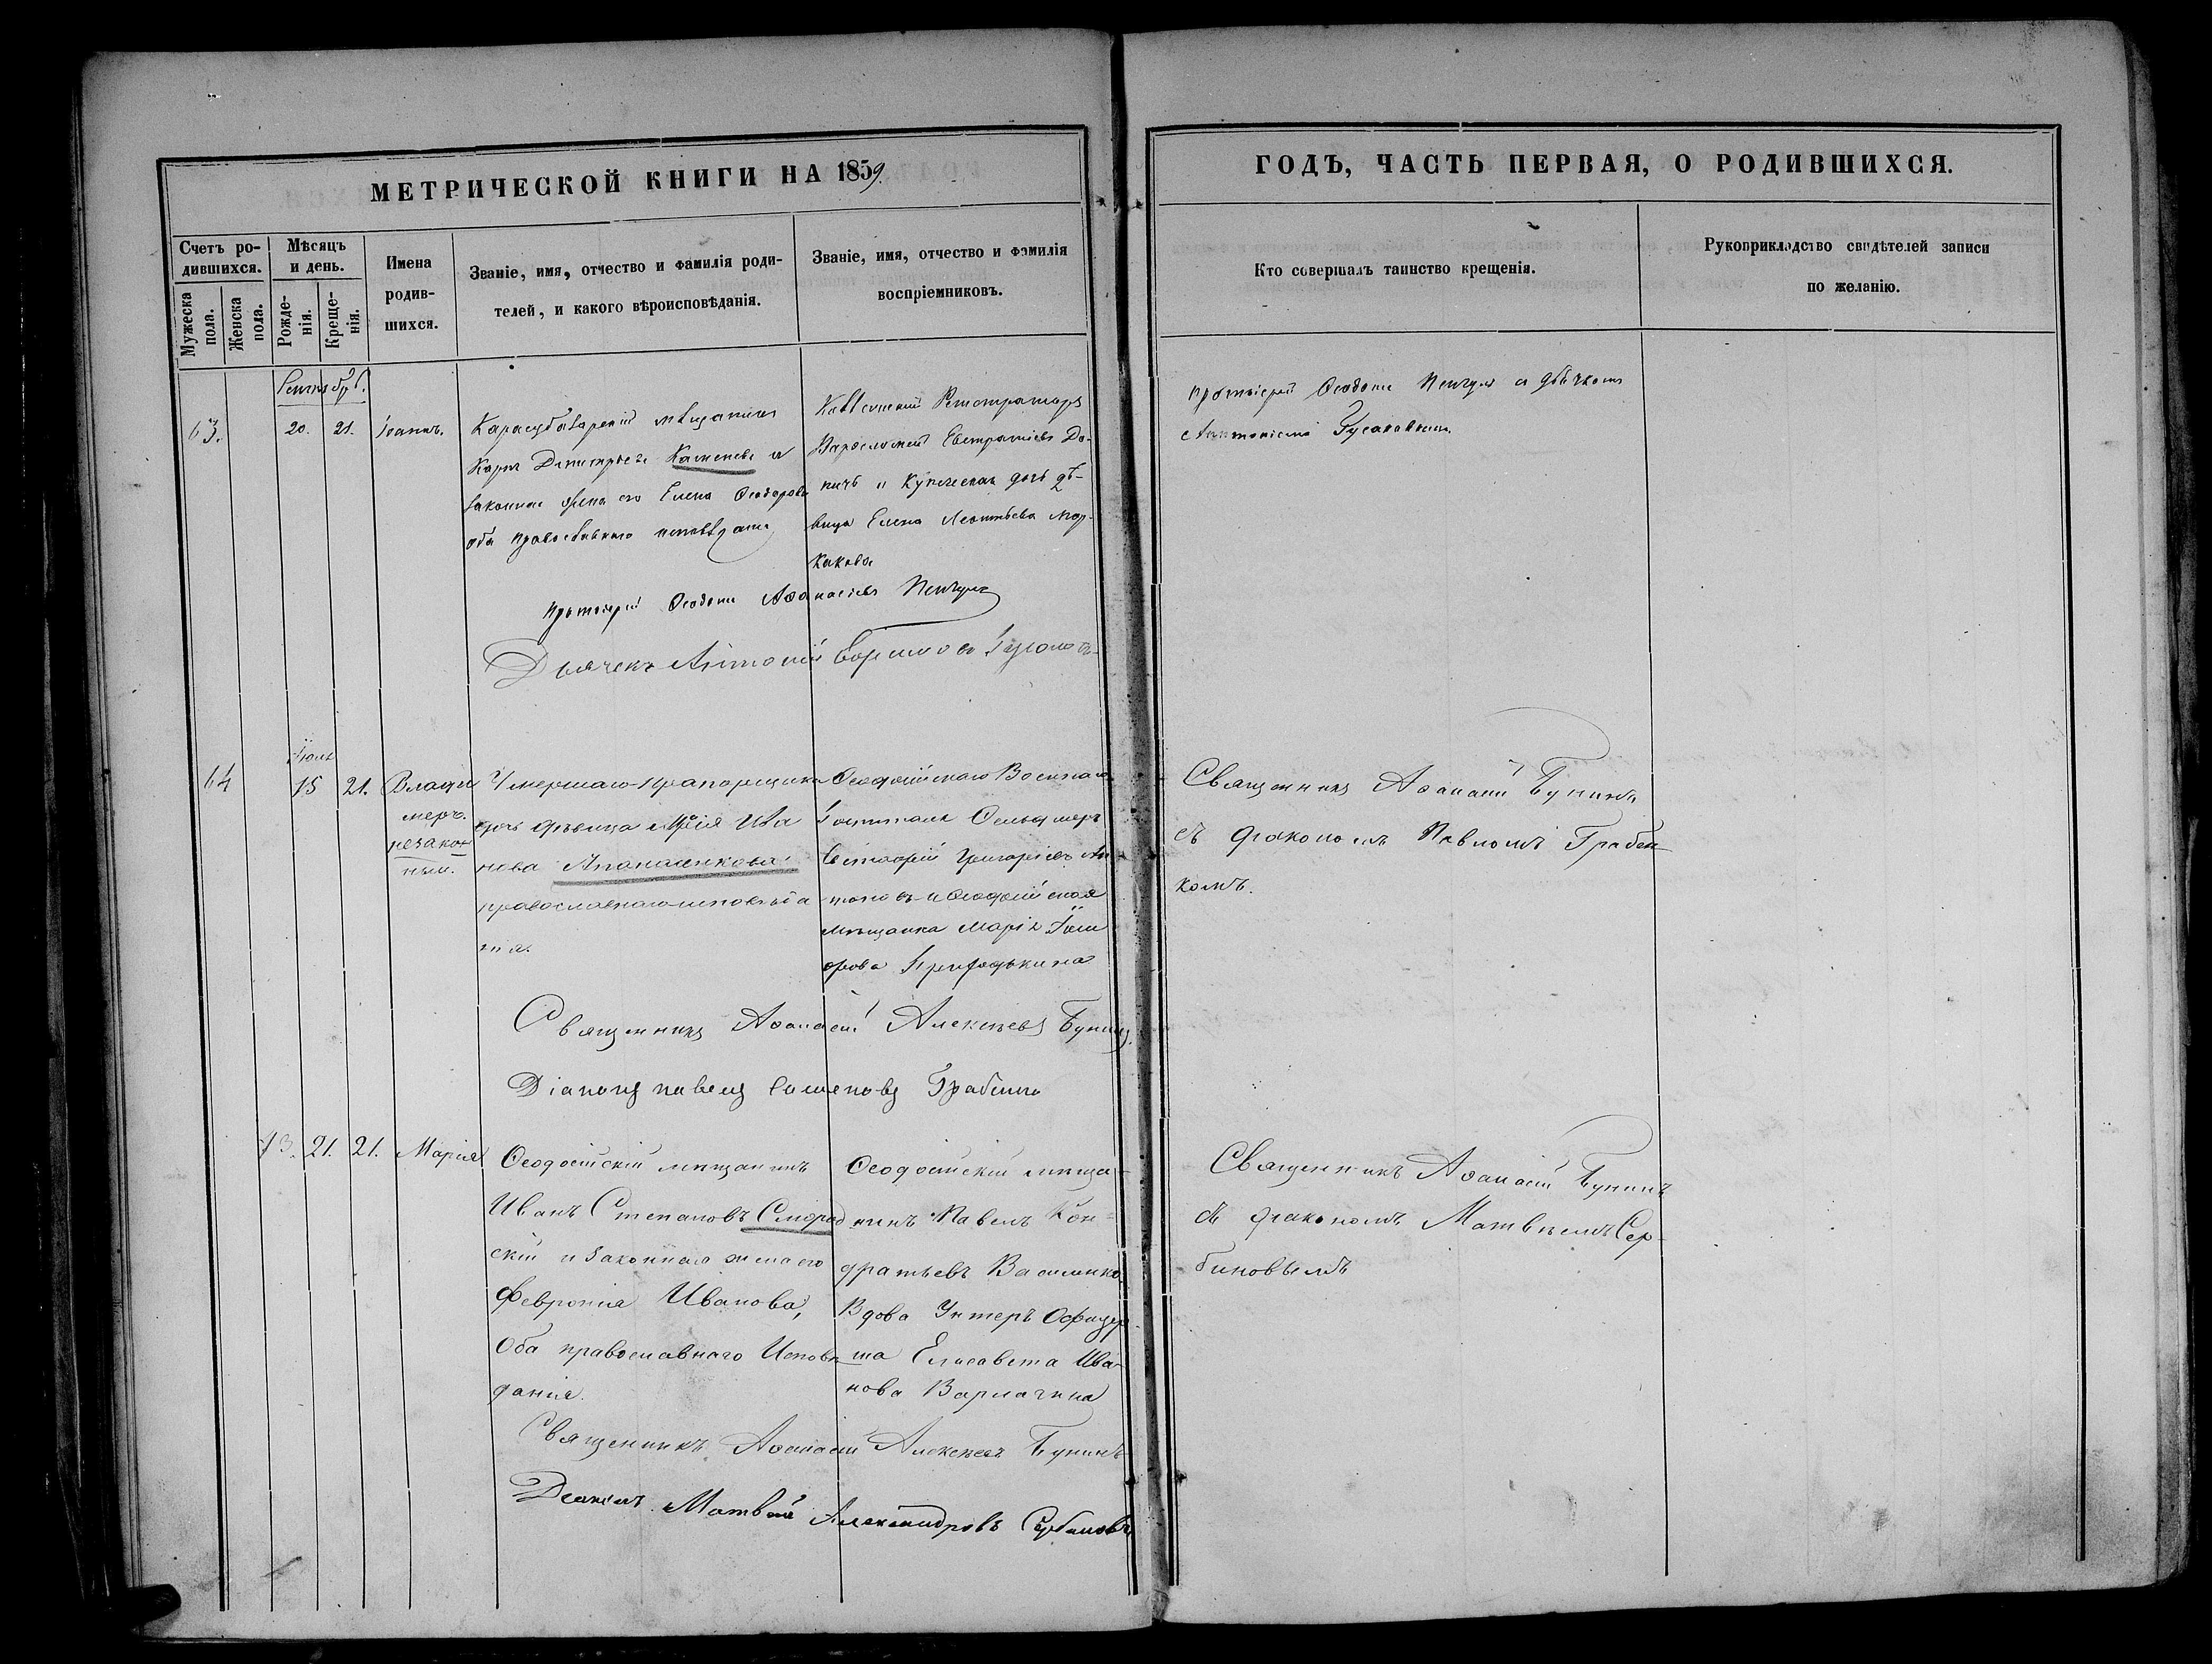 МЕТРИЧЕСКОЙ КНИГИ НА 1859.
ГОДЪ, ЧАСТЬ ПЕРВАЯ, О РОДИВШИХСЯ.
Счетъ ро-
дившихся.
Мужеска
пола.
Женска
пола.
Мѣсяцъ
и день.
Рожде-
нія.
Креще-
нія.
Имена
родив-
шихся.
Званіе, имя, отчество и фамилія роди-
телей, и какого вѣроисповѣданія.
Званіе, имя, отчество и фамилія
воспріемниковъ.
Кто совершалъ таинство крещенія.
Рукоприкладство свидѣтелей записи
по желанію.
63.
20. 21.
Іоаннъ.
Карасубазарскій мѣщанинъ
Карпъ Димитріевъ Каменевъ и
законная жена его Елена Ѳеодорова
оба православнаго исповѣданія
Регистраторъ
Варѳоломей Евстратіевъ До-
ничъ и купеческая дочь дѣ-
вица Елена Леонтьева Мар-
какова
протоіерей Ѳеодосій Аѳанасіевъ
Дьячекъ Антоній
протоіерей Ѳеодосій съ дьячкомъ
Антоніемъ Гусаковымъ
64
Іюль
15 21.
Влади
меръ.
незакон
ный.
Умершаго прапорщика
дочь дѣвица Марія Ива
нова Апанасенкова
православнаго исповѣда
нія.
Ѳеодосійскаго Военнаго
Госпиталя Фельдшеръ
Евстафій Григоріевъ Ан
тоновъ и Ѳеодосійская
мѣщанка Марія
Священникъ Аѳанасій Алексѣевъ Бунинъ
Діаконъ Павелъ
Священникъ Аѳанасій Бунинъ
съ діакономъ Павломъ Грабен
комъ.
13. 21. 21.
Марія
Ѳеодосійскій мѣщанинъ
Иванъ Степановъ Смород
скій и законная жена его
Февронія Иванова,
Оба православнаго Исповѣ
данія.
Ѳеодосійскій мѣща-
нинъ Павелъ Кон-
дратьевъ Василенко
Вдова Унтеръ Офицер
ша Елисавета Ива-
нова Варлагина
Священникъ Аѳанасій Алексѣевъ Бунинъ
Діаконъ Матвѣй Александровъ Сербиновъ
Священникъ Аѳанасій Бунинъ
съ діакономъ Матвѣемъ Сер-
биновымъ